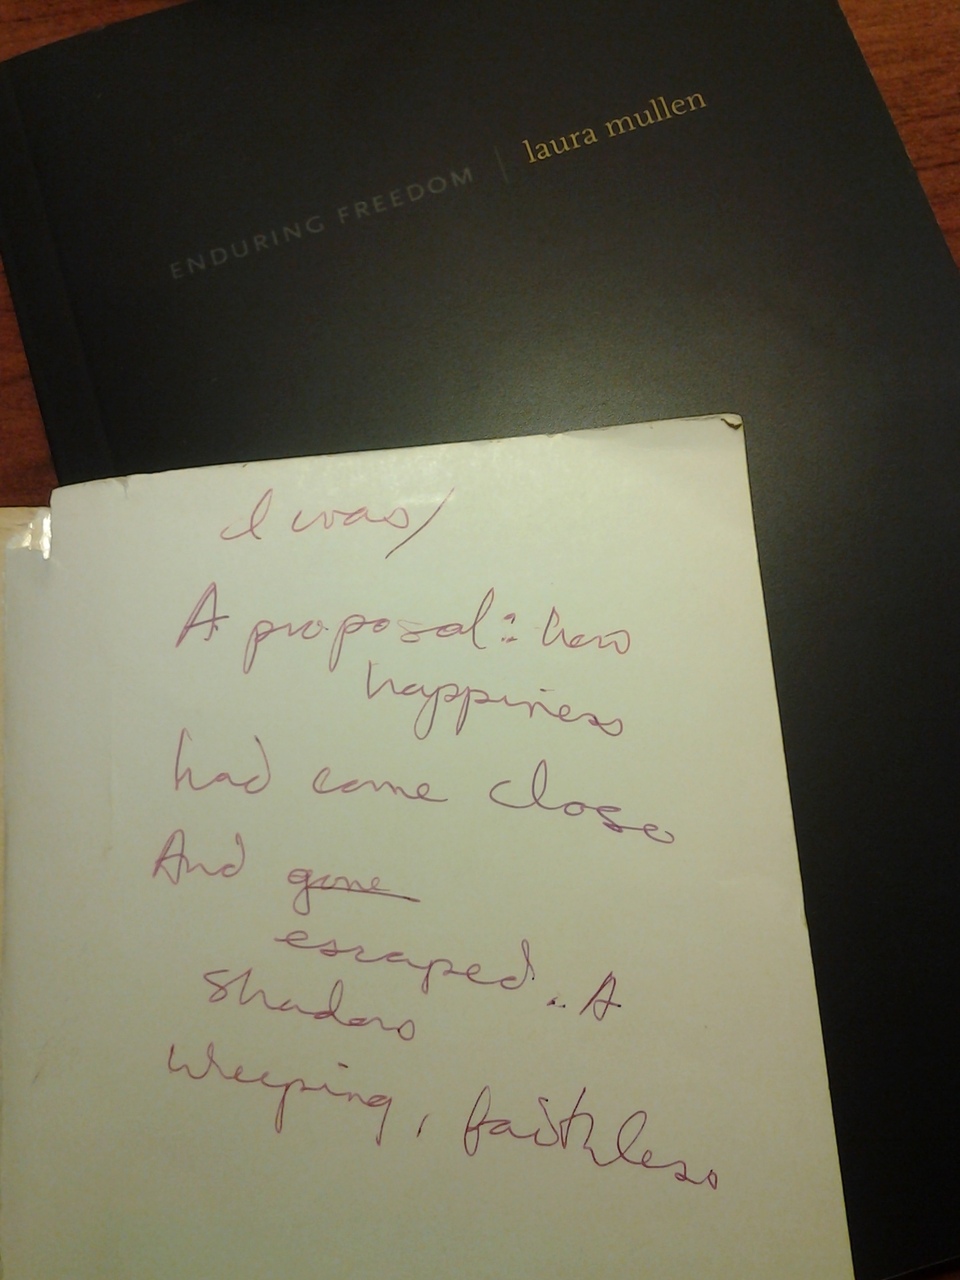 ENDURING FREEDOM | laura mullen
I was/
A proposal: how
happiness
had come close
And gone
escaped. A
shadow
weeping, faithless